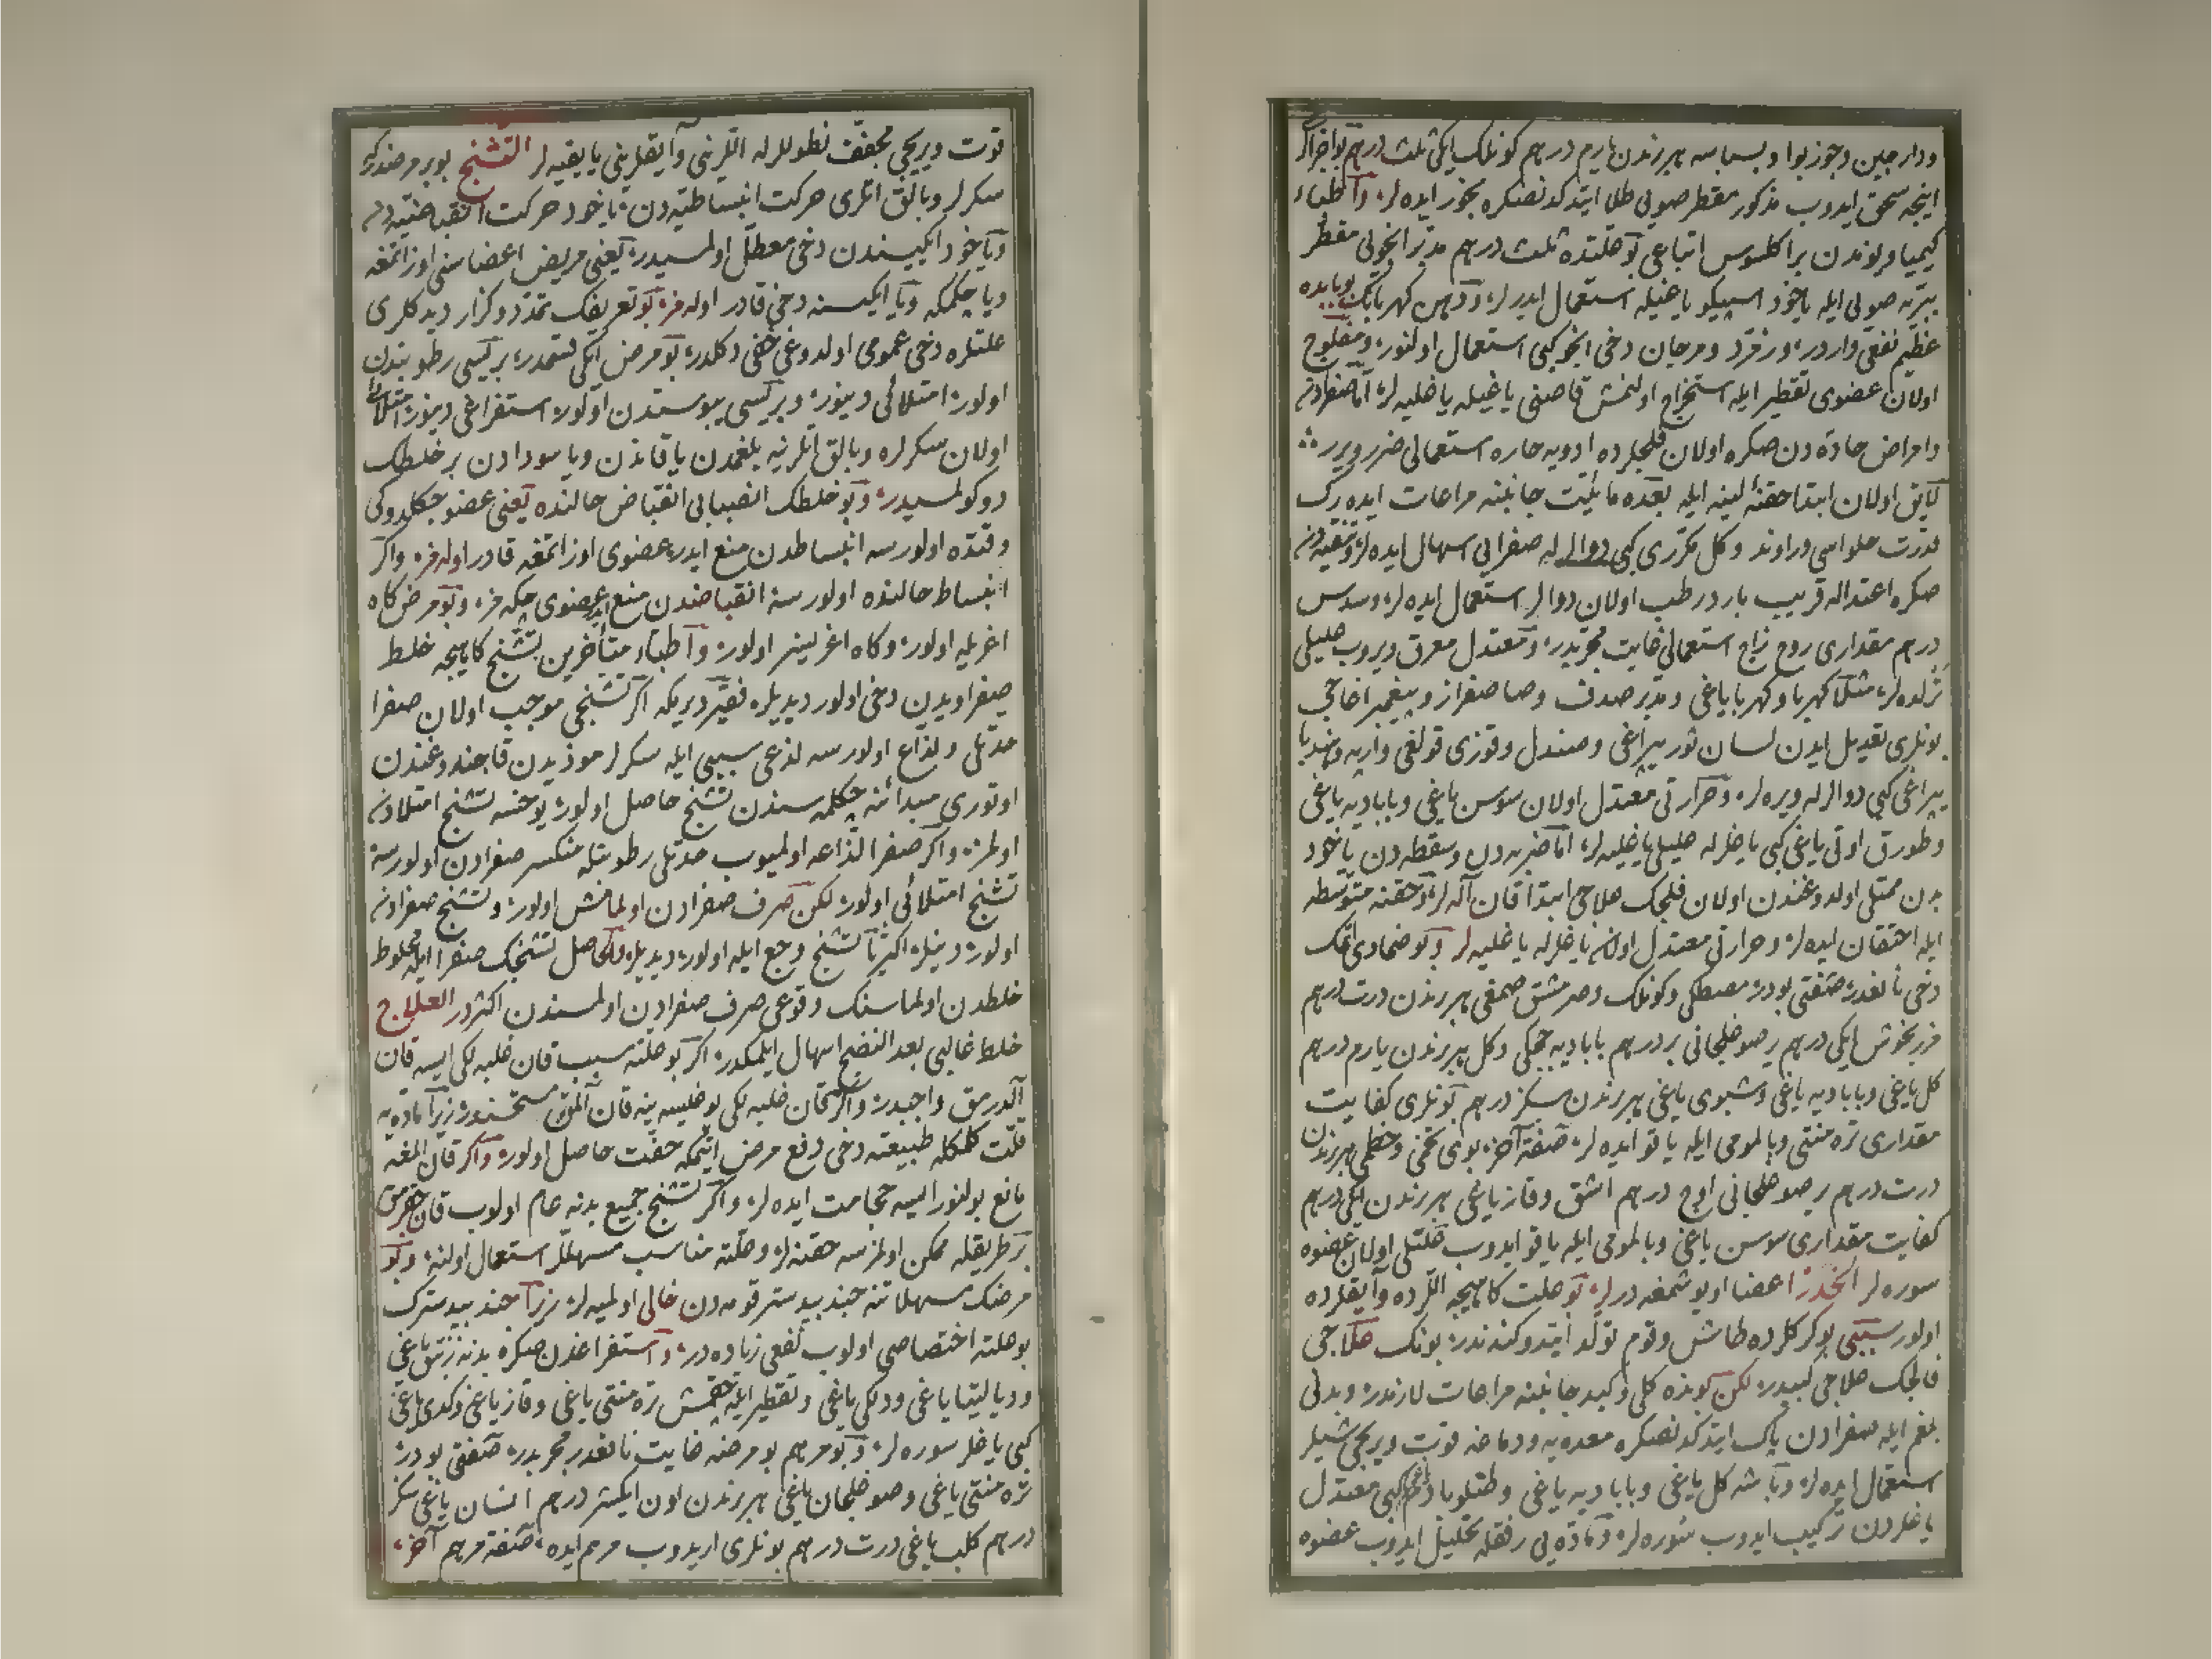 ودارچین وجوز بوا وبسباسه هر برندن یارم درهم کونلک ایکی ثلث درهم بو اجزالر
اینجه سحق ایدوب مذکور مقطر صویی طلا ایتدکدنصکره بخور ایده لر واطباء
کیمیا وبوندن براکلسوس اتباعی بو علتده ثلث درهم مدبر انجویی مقطر
ایله یاخود اسپیکو یاغیله استعمال ایدرلر ودهن کهربانک بوبابده
عظیم نفعی واردر وزمرد ومرجان دخی انجو کبی استعمال اولنور ومفلوج
اولان عضوی تقطیر ایله استخراج اولنمش قاصنی یاغیله یاغلیه لر اما صفرادن
وامراض حاده دن صکره اولان فلجلرده ادویه حاره استعمالی ضرر ویرر
لایق اولان ابتدا حقنۀ لینه ایله بعده مائیت جانبنه مراعات ایده رک
قدرت حلواسی وراوند وکل مکرری کبی دوالر له صفرایی اسهال ایده لر وتنقیه دن
صکره اعتداله قریب بارد رطب اولان دوالر استعمال ایده لر وسدس
درهم مقداری روح زاج استعمالی غایت مجربدر ومعتدل معرق ویروب علیلی
ترلده لر مثلا کهربا وکهربا یاغی ومدبر صدف وصاصفراز وپیغمبر اغاجی
بونلری تعدیل ایدن لسان ثور یپراغی وصندل وقوزی قولغی واریه وهندبا
یپراغی کبی دوالرله ویره لر وحرارتی معتدل اولان سوسن یاغی وبابادیه یاغی
وطورق اوتی یاغی کبی یاغلرله علیلی یاغلیه لر اما ضربه دن وسقطه دن یاخود
بدن ممتلی اولدوغندن اولان فلجک علاجی ابتدا قان اله لر وحقنه متوسطه
ایله احتقان ایده لر وحرارتی معتدل اولان یاغلرله یاغلیه لر وبو ضمادی اتمک
دخی نافعدر صنعتی بودر مصطکی وکونلک وصرمشق صمغی هر برندن درت درهم
مرزنخوش ایکی درهم یر صوغلجانی بر درهم بابادیه چچکی وکل هر برندن یارم درهم
کل یاغی وبابادیه یاغی وشبوی یاغی هر برندن سکز درهم بونلری کفایت
مقداری تره منتی وبالمومی ایله یاقو ایده لر صفة آخر بوی تخمی وخطمی هر برندن
درت درهم یر صوغلجانی اوچ درهم اشق وقاز یاغی هر برندن ایکی درهم
کفایت مقداری سوسن یاغی وبالمومی ایله یاقو ایدوب علتلی اولان عضوه
سوره لر الخدر اعضا اویوشمغه درلر بو علت کاهیجه اللرده وایقلرده
اولور سببی بوکرکلرده طاش وقوم تولد ایتدوکندندر بونک علاجی
فالجک علاجی کبیدر لکن بونده کلی وکبد جانبنه مراعات لازمدر وبدنی
بلغم ایله صفرادن پاک ایتدکدنصکره معده یه ودماغه قوت ویریجی شیلر
استعمال ایده لر وباشه کل یاغی وبابادیه یاغی وطتلو بادم یاغی کبی معتدل
یاغلردن ترکیب ایدوب سوره لر وماده یی رفقله تحلیل ایدوب عضوه
قوت ویریجی مجفف نطوللرله اللرینی وایقلرینی یایقیه لر التشنج بو بر مرضدرکه
سکرلر وبالق اتلری حرکت انبساطیه دن یاخود حرکت انقباضیه دن
ویاخود ایکیسندن دخی معطل اولمسیدر یعنی مریض اعضاسنی اوزاتمغه
ویا چکمکه ویا ایکیسنه دخی قادر اوله مز بو تعریفک تمدد وکزاز دیدکلری
علتلره دخی عمومی اولدوغی خفی دکلدر بو مرض ایکی قسمدر بریسی رطوبتدن
اولور امتلائی دینور وبریسی یبوستدن اولور استفراغی دینور امتلائی
اولان سکرلره وبالق اتلرینه بلغمدن یا قاندن ویا سودادن بر خلطک
دوکولمسیدر وبو خلطک انصبابی انقباض حالنده یعنی عضو چکلدوکی
وقتده اولورسه انبساطدن منع ایدر عضوی اوزاتمغه قادر اوله مز واکر
انبساط حالنده اولورسه انقباضدن منع ایدر عضوی چکه مز وبو مرض کاه
اغریله اولور وکاه اغریسز اولور واطباء متأخرین تشنج کاهیجه خلط
صفراویدن دخی اولور دیدیلر فقیر دیریکه اکر تشنجی موجب اولان صفرا
حدتلی ولذاع اولورسه لذعی سببی ایله سکرلر موذیدن قاچندوغندن
اوتوری مبدأنه چکلمه سندن تشنج حاصل اولور یوخسه تشنج امتلادن
اولمز واکر صفرا لذاعه اولمیوب حدتلی رطوبتله منکسر صفرادن اولورسه
تشنج امتلائی اولور لکن صرف صفرادن اولمامش اولور وتشنج صفرادن
اولور دینلر اکثریا تشنج وجع ایله اولور دیدیلر والحاصل تشنجک صفرا ایله مخلوط
خلطدن اولماسنک وقوعی صرف صفرادن اولمسندن اکثردر العلاج
خلط غالبی بعد النضج اسهال ایلمکدر اکر بو علته سبب قان غلبه لکی ایسه قان
آلدرمق واجبدر واکر قان غلبه لکی یوغیسه ینه قان آلمق مستحسندر زیرا ماده یه
قلت کلمکله طبیعته دخی دفع مرض ایتمکه خفت حاصل اولور واکر قان المغه
مانع بولنور ایسه حجامت ایده لر واکر تشنج جمیع بدنه عام اولوب قان چقرمق
بر طریقله ممکن اولمزسه حقنه لر وعلته مناسب مسهللر استعمال اولنه وبو
مرضک مسهلاتنه جندبیدستر قومه دن خالی اولمیه لر زیرا جندبیدسترک
بو علته اختصاصی اولوب نفعی زیاده در واستفراغدن صکره بدنه زنبق یاغی
ودیالیتیا یاغی ودلکی یاغی وتقطیر ایله چقمش تره منتی یاغی وقاز یاغی وکدی یاغی
کبی یاغلر سوره لر وبو مرهم بو مرضه غایت نافعدر مجربدر صنعتی بودر
تره منتی یاغی وصوغلجان یاغی هر برندن اون ایکیشر درهم انسان یاغی سکز
درهم کلب یاغی درت درهم بونلری اریدوب مرهم ایده صفة مرهم آخر